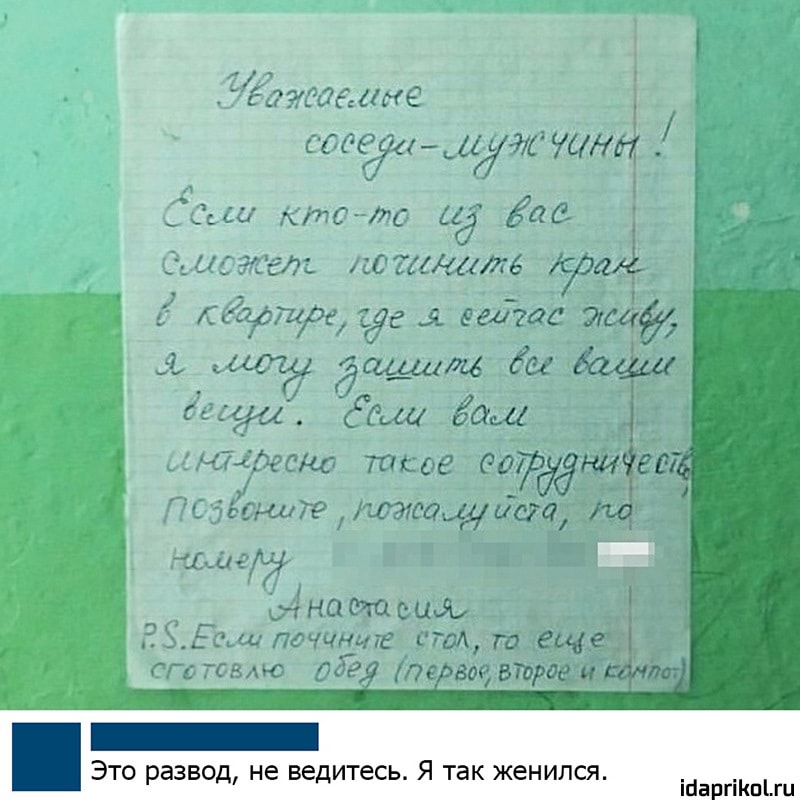 Уважаемые
соседи-мужчины!
Если кто-то из вас
сможет починить кран
в квартире, где я сейчас живу,
я могу зашить все ваши
вещи. Если вам
интересно такое сотрудничество,
позвоните, пожалуйста, по
номеру
Анастасия
P.S. Если почините стол, то еще
сготовлю обед (первое, второе и компот)
Это развод, не ведитесь. Я так женился.
idaprikol.ru